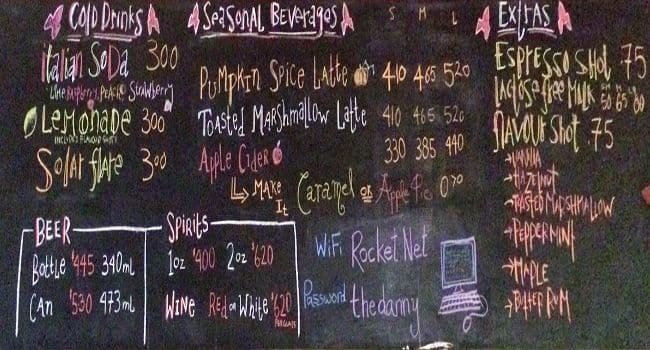 Cold Drinks
Italian Soda 300
Lime Raspberry, Peach, Strawberry
Lemonade 300
Includes Flavour Shot
Solar flare 300
Seasonal Beverages S M L
Pumpkin Spice Latte 410 465 520
Toasted Marshmallow Latte 410 465 520
Apple Cider 330 385 440
Make It Caramel or Apple Pie 070
Extras
Espresso Shot 75
Lactose free Milk 50 65 80
flavour Shot 75
Vanilla
Hazelnut
Toasted Marshmallow
Peppermint
Maple
Butter Rum
Beer
Bottle $445 340ml
Can $530 473ml
Spirits
1oz $400 2oz $620
Wine Red or White $620
Per Glass
WiFi Rocket Net
Password thedanny